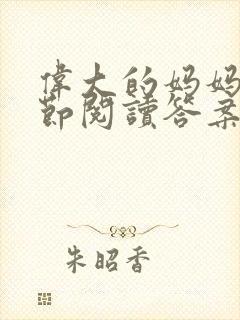 偉大的妈妈
節閱讀答案
朱昭香